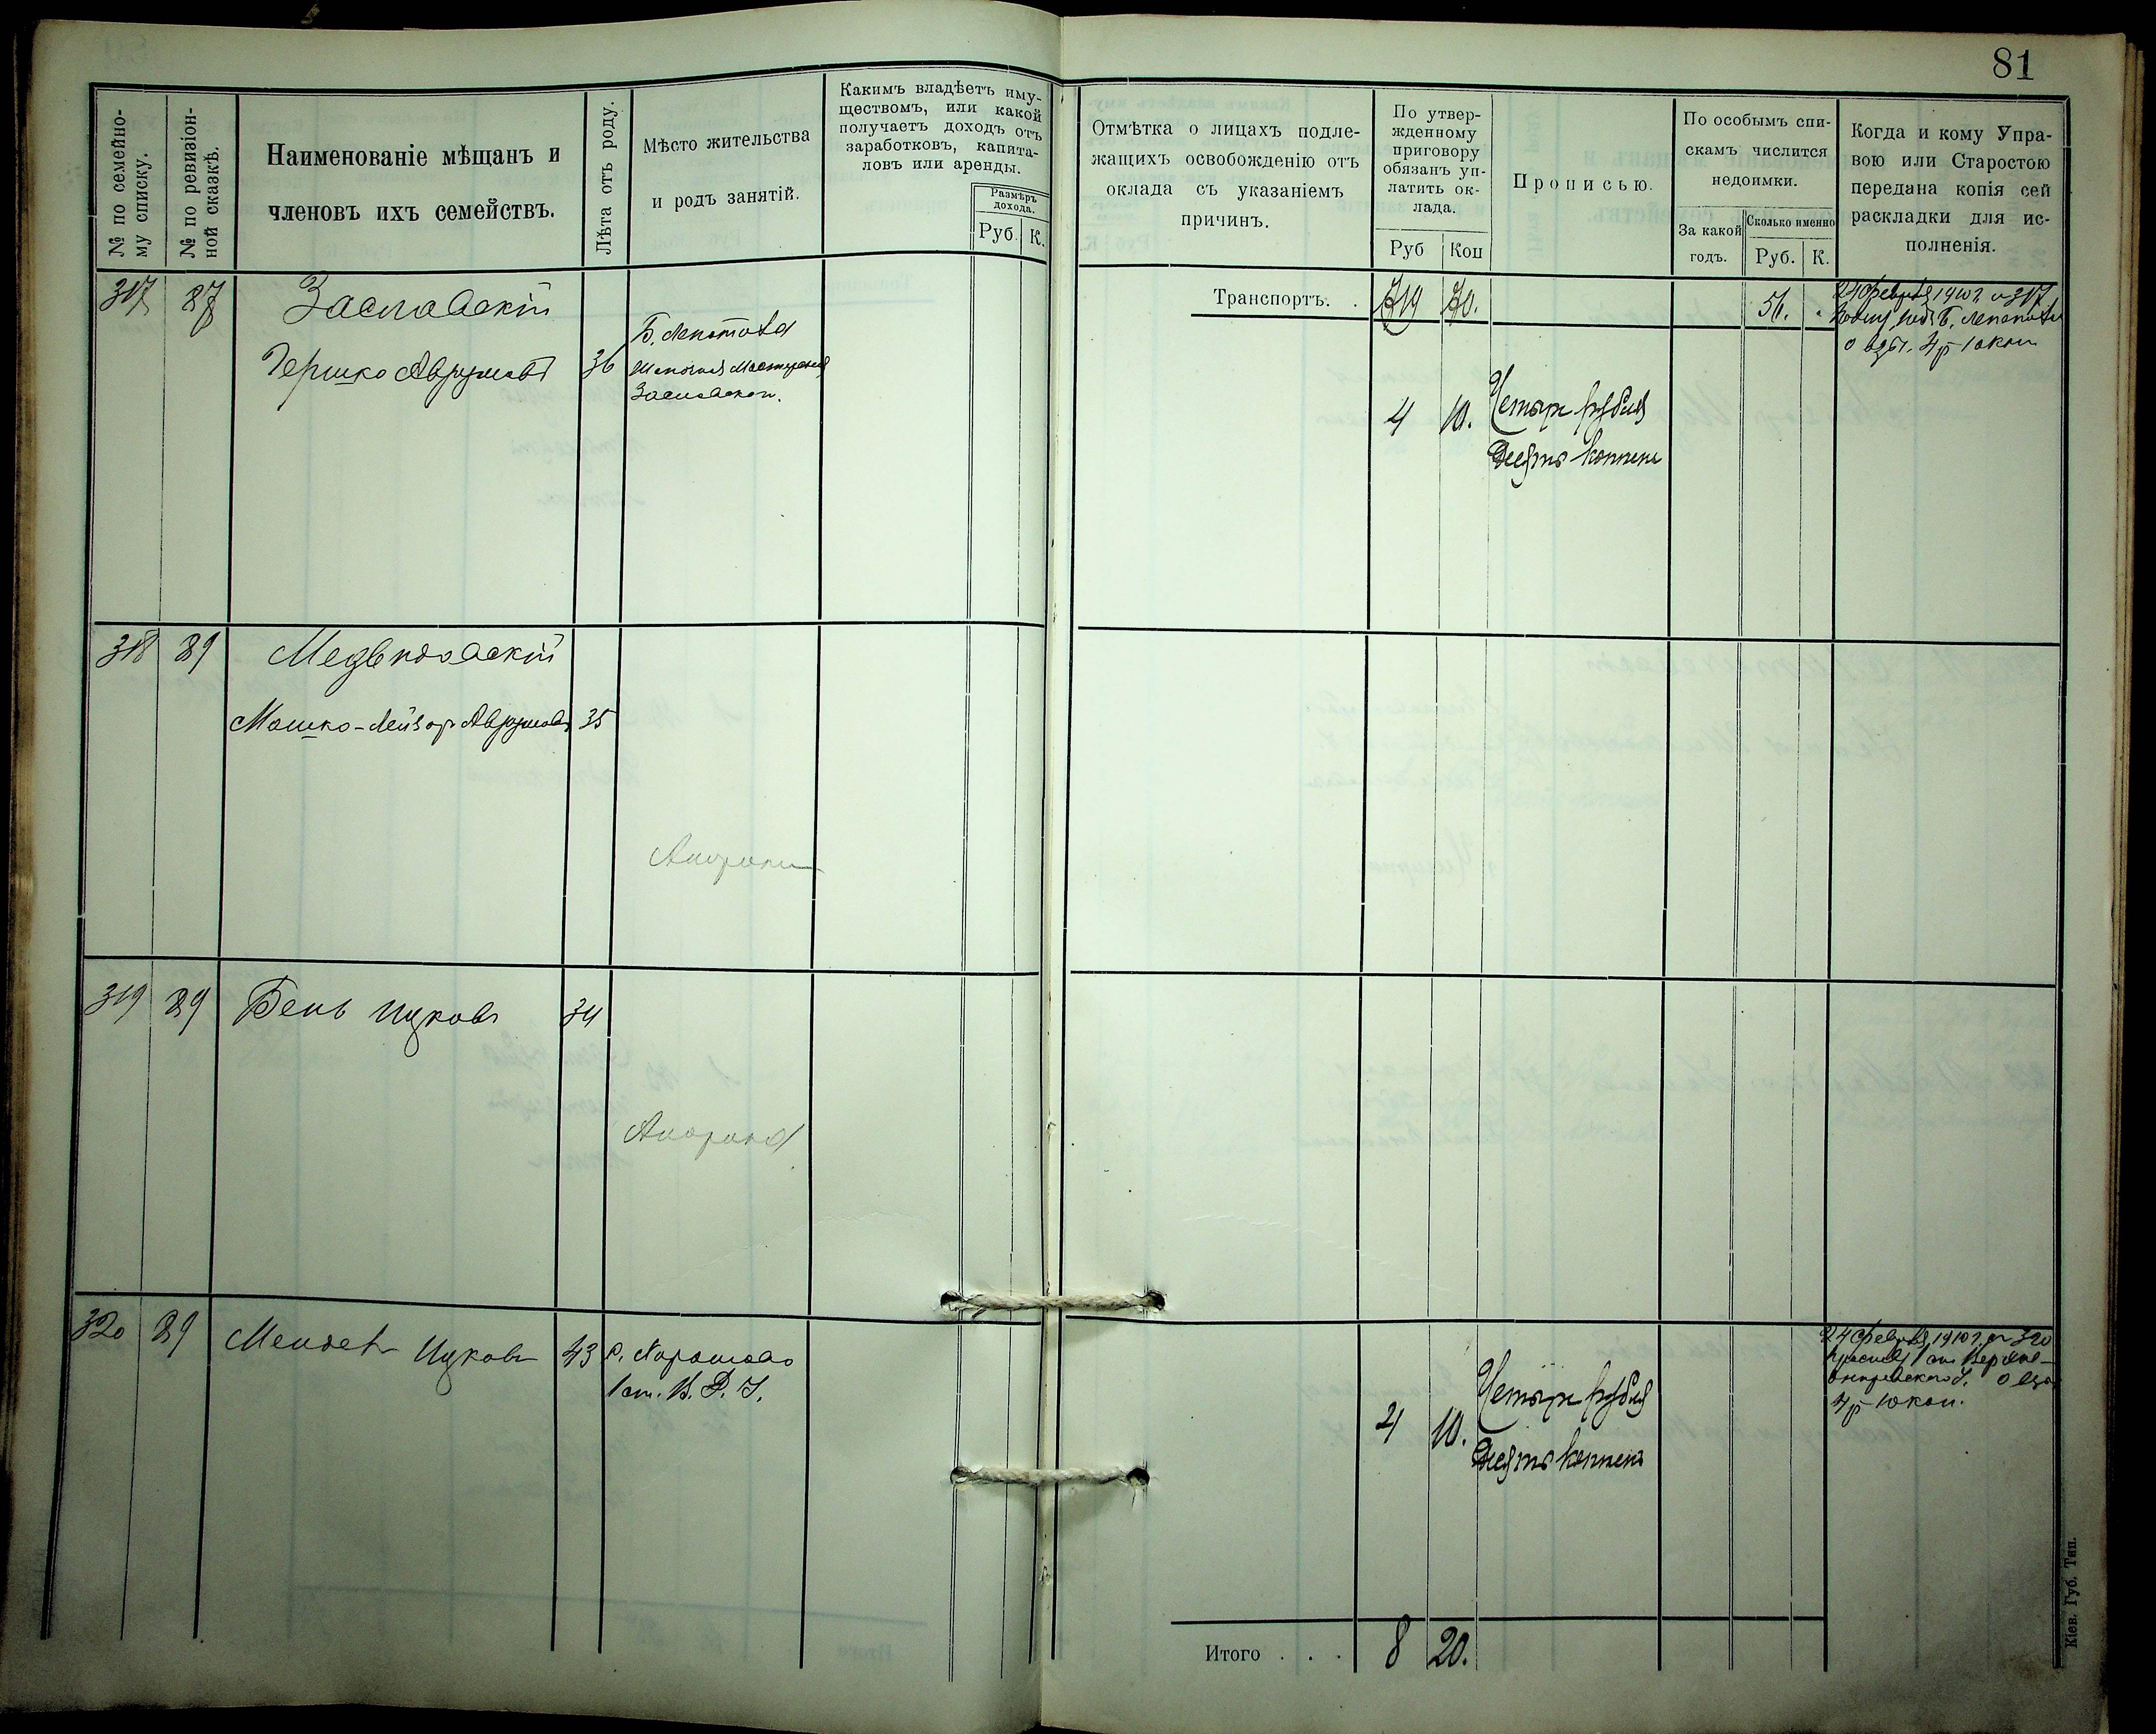 81
№ по семейно-
му списку.
№ по ревизіон-
ной сказкѣ.
Наименованіе мѣщанъ и
членовъ ихъ семействъ.
Лѣта отъ роду.
Мѣсто жительства
и родъ занятій.
Какимъ владѣетъ иму-
ществомъ, или какой
получаетъ доходъ отъ
заработковъ, капита-
ловъ или аренды.
Размѣръ
дохода.
Руб. К.
Отмѣтка о лицахъ подле-
жащихъ освобожденію отъ
оклада съ указаніемъ
причинъ.
По утвер-
жденному
приговору
обязанъ уп-
латить ок-
лада.
Руб Коп
Прописью.
По особымъ спи-
скамъ числится
недоимки.
За какой
годъ.
Сколько именно
Руб. К.
Когда и кому Упра-
вою или Старостою
передана копія сей
раскладки для ис-
полненія.
Транспортъ. . 719 70. 56.
317 87 Заславскій
Гершко Аврумовъ 36
4 10. Четыре рубля
десять копѣекъ
24 Февраля 1910 г. № 317
4 р 10 коп
318 89 Медвѣдовскій
Мошко-Лейзоръ Аврумовъ 35
319 89 Бень Ицковъ 34
320 89 Мендель Ицковъ 43
1 ст. В. Д. У.
4 10. Четыре рубля
десять копѣекъ
24 Февраля 1910 г. № 320
4 р 10 коп.
Итого . . . 8 20.
Кіев. Губ. Тип.